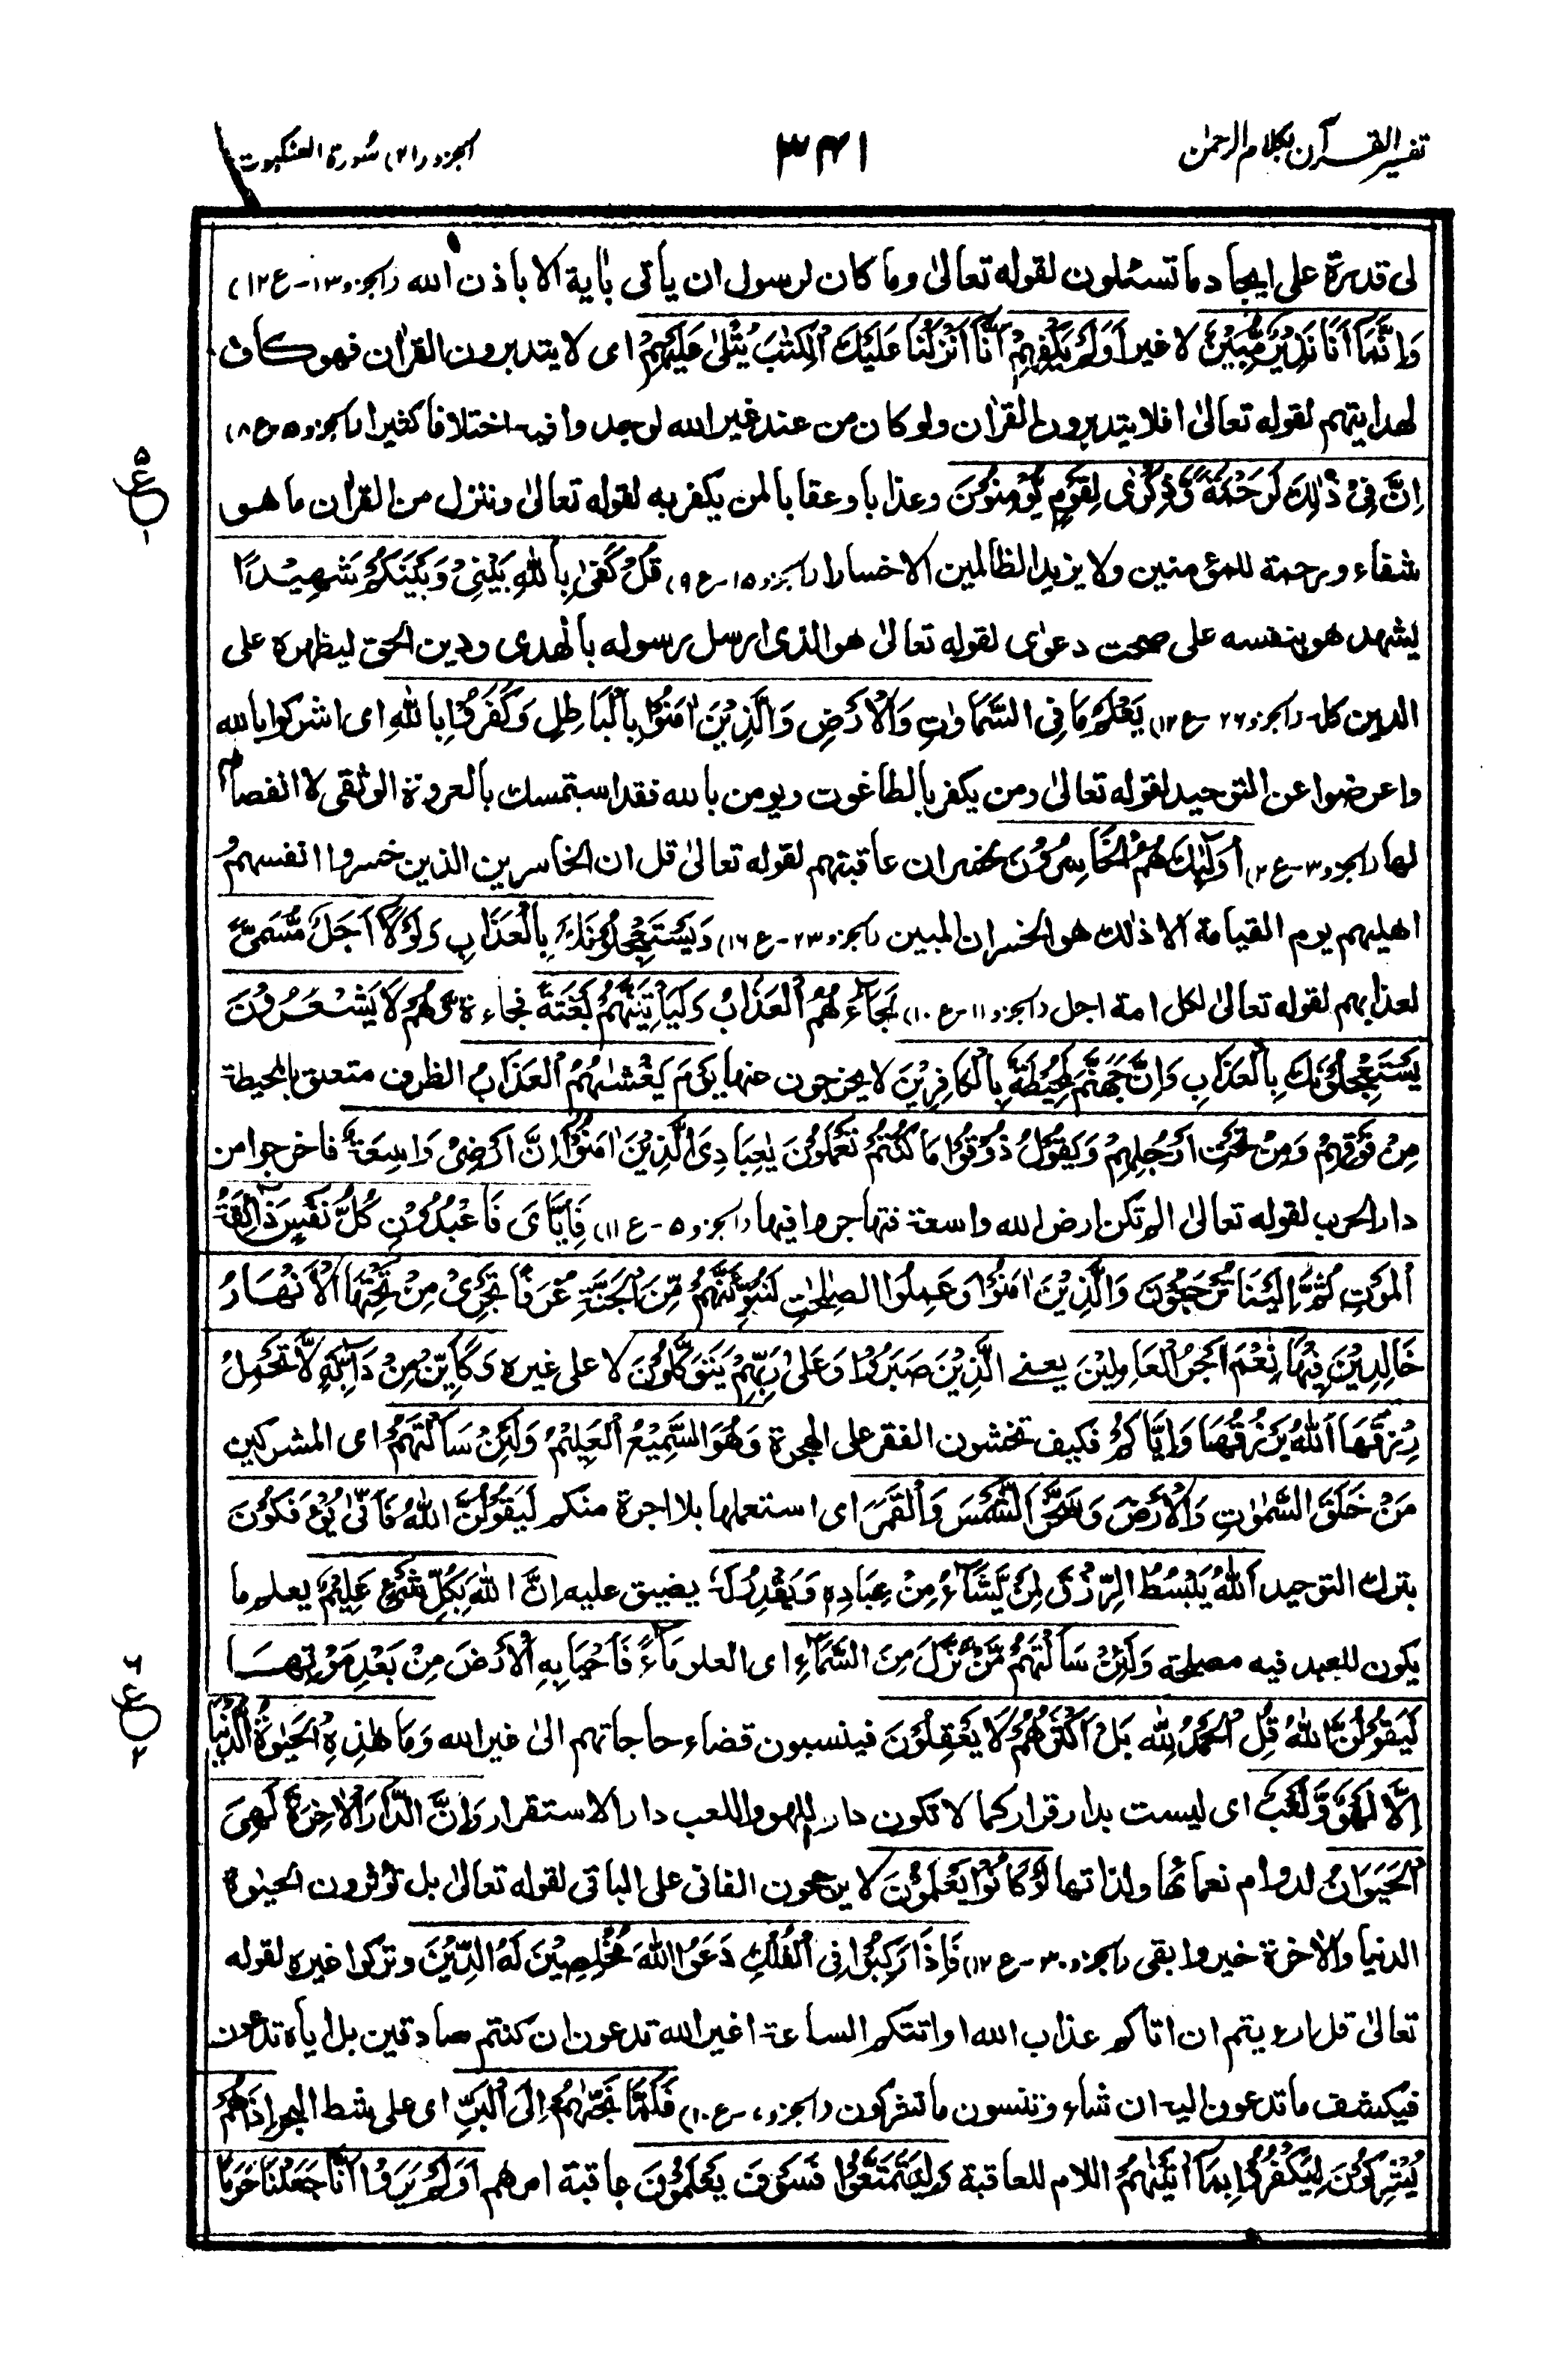 تفسیر القرآن بکلام الرحمٰن
۳۴۱
الجزء (۲۱) سُورة العنکبوت
لی قدرة علی ایجاد ما تسئلون لقوله تعالیٰ وما کان لرسول ان یأتی بأیة الا باذن الله (الجزو ۱۳-ع ۱۲)
وَاِنَّمَآ اَنَا نَذِیْرٌ مُّبِیْنٌ لا غیر اَوَلَمْ یَکْفِهِمْ اَنَّآ اَنْزَلْنَا عَلَیْكَ الْکِتٰبَ یُتْلٰی عَلَیْهِمْ ای لا یتدبرون القرأن فهو کاف
لهدایتهم لقوله تعالیٰ افلا یتدبرون القرأن ولو کان من عند غیر الله لوجدوا فیه اختلافا کثیرا (الجزو ۵-ع ۸)
اِنَّ فِیْ ذٰلِكَ لَرَحْمَةً وَّذِکْرٰی لِقَوْمٍ یُّؤْمِنُوْنَ وعذابا وعقابا لمن یکفر به لقوله تعالیٰ وننزل من القرأن ما هو
شفاء ورحمة للمؤمنین ولا یزید الظالمین الا خسارا (الجزو ۱۵-ع ۹) قُلْ کَفٰی بِاللّٰهِ بَیْنِیْ وَبَیْنَکُمْ شَهِیْدًا
یشهد هو بنفسه علی صحت دعوٰی لقوله تعالیٰ هو الذی ارسل رسوله بالهدی ودین الحق لیظهره علی
الدین کله (الجزو ۲۶-ع ۱۲) یَعْلَمُ مَا فِی السَّمَاوٰتِ وَالْاَرْضِ وَالَّذِیْنَ اٰمَنُوْا بِالْبَاطِلِ وَکَفَرُوْا بِاللّٰهِ ای اشرکوا بالله
واعرضوا عن التوحید لقوله تعالیٰ ومن یکفر بالطاغوت ویومن بالله فقد استمسك بالعروة الوثقی لا انفصام
لها (الجزو ۳-ع ۲) اُولٰٓئِكَ هُمُ الْخَاسِرُوْنَ بخسران عاقبتهم لقوله تعالیٰ قل ان الخاسرین الذین خسروا انفسهم و
اهلیهم یوم القیامة الا ذلك هو الخسران المبین (الجزو ۲۳-ع ۱۶) وَیَسْتَعْجِلُوْنَكَ بِالْعَذَابِ وَلَوْلَآ اَجَلٌ مُّسَمًّی
لعذابهم لقوله تعالیٰ لکل امة اجل (الجزو ۱۱-ع ۱۰) لَجَآءَهُمُ الْعَذَابُ وَلَیَاْتِیَنَّهُمْ بَغْتَةً فجاءة وَّهُمْ لَا یَشْعُرُوْنَ
یَسْتَعْجِلُوْنَكَ بِالْعَذَابِ وَاِنَّ جَهَنَّمَ لَمُحِیْطَةٌ بِالْکَافِرِیْنَ لا یخرجون منها یَوْمَ یَغْشٰىهُمُ الْعَذَابُ الظرف متعلق بالمحیطة
مِنْ فَوْقِهِمْ وَمِنْ تَحْتِ اَرْجُلِهِمْ وَیَقُوْلُ ذُوْقُوْا مَا کُنْتُمْ تَعْمَلُوْنَ یٰعِبَادِیَ الَّذِیْنَ اٰمَنُوْٓا اِنَّ اَرْضِیْ وَاسِعَةٌ فاخرجوا من
دار الحرب لقوله تعالیٰ الم تکن ارض الله واسعة فتهاجروا فیها (الجزو ۵-ع ۱۱) فَاِیَّایَ فَاعْبُدُوْنِ کُلُّ نَفْسٍ ذَآئِقَةُ
الْمَوْتِ ثُمَّ اِلَیْنَا تُرْجَعُوْنَ وَالَّذِیْنَ اٰمَنُوْا وَعَمِلُوا الصّٰلِحٰتِ لَنُبَوِّئَنَّهُمْ مِّنَ الْجَنَّةِ غُرَفًا تَجْرِیْ مِنْ تَحْتِهَا الْاَنْهَارُ
خَالِدِیْنَ فِیْهَا نِعْمَ اَجْرُ الْعَامِلِیْنَ یعنے الَّذِیْنَ صَبَرُوْا وَعَلٰی رَبِّهِمْ یَتَوَکَّلُوْنَ لا علی غیره وَکَاَیِّنْ مِنْ دَآبَّةٍ لَّا تَحْمِلُ
رِزْقَهَا اَللّٰهُ یَرْزُقُهَا وَاِیَّاکُمْ فکیف تخشون الفقر علی الهجرة وَهُوَ السَّمِیْعُ الْعَلِیْمُ وَلَئِنْ سَاَلْتَهُمْ ای المشرکین
مَنْ خَلَقَ السَّمٰوٰتِ وَالْاَرْضَ وَسَخَّرَ الشَّمْسَ وَالْقَمَرَ ای استعملها بلا اجرة منکم لَیَقُوْلُنَّ اللّٰهُ فَاَنّٰی یُؤْفَکُوْنَ
بترك التوحید اَللّٰهُ یَبْسُطُ الرِّزْقَ لِمَنْ یَّشَآءُ مِنْ عِبَادِهٖ وَیَقْدِرُ لَهٗ یضیق علیه اِنَّ اللّٰهَ بِکُلِّ شَیْءٍ عَلِیْمٌ یعلم ما
یکون للعبد فیه مصلحة وَلَئِنْ سَاَلْتَهُمْ مَّنْ نَّزَّلَ مِنَ السَّمَآءِ ای العلو مَآءً فَاَحْیَا بِهِ الْاَرْضَ مِنْ بَعْدِ مَوْتِهَا
لَیَقُوْلُنَّ اللّٰهُ قُلِ الْحَمْدُ لِلّٰهِ بَلْ اَکْثَرُهُمْ لَا یَعْقِلُوْنَ فینسبون قضاء حاجاتهم الیٰ غیر الله وَمَا هٰذِهِ الْحَیٰوةُ الدُّنْیَآ
اِلَّا لَهْوٌ وَّلَعِبٌ ای لیست بدار قرار کما لا تکون دار اللهو واللعب دار الاستقرار وَاِنَّ الدَّارَ الْاٰخِرَةَ لَهِیَ
الْحَیَوَانُ لدوام نعمائها ولذاتها لَوْ کَانُوْا یَعْلَمُوْنَ لا یرجحون الفانی علی الباقی لقوله تعالیٰ بل تؤثرون الحیٰوة
الدنیا والاٰخرة خیر وابقی (الجزو ۳۰-ع ۱۲) فَاِذَا رَکِبُوْا فِی الْفُلْكِ دَعَوُا اللّٰهَ مُخْلِصِیْنَ لَهُ الدِّیْنَ وترکوا غیره لقوله
تعالیٰ قل ارءیتم ان اتاکم عذاب الله او اتتکم الساعة اغیر الله تدعون ان کنتم صادقین بل ایاه تدعون
فیکشف ما تدعون الیه ان شاء وتنسون ما تشرکون (الجزو ۷-ع ۱۰) فَلَمَّا نَجّٰىهُمْ اِلَی الْبَرِّ ای علی شط البحر اِذَا هُمْ
یُشْرِکُوْنَ لِیَکْفُرُوْا بِمَآ اٰتَیْنٰهُمْ اللام للعاقبة وَلِیَتَمَتَّعُوْا فَسَوْفَ یَعْلَمُوْنَ عاقبة امرهم اَوَلَمْ یَرَوْا اَنَّا جَعَلْنَا حَرَمًا
۵
ع
۱
۶
ع
۲